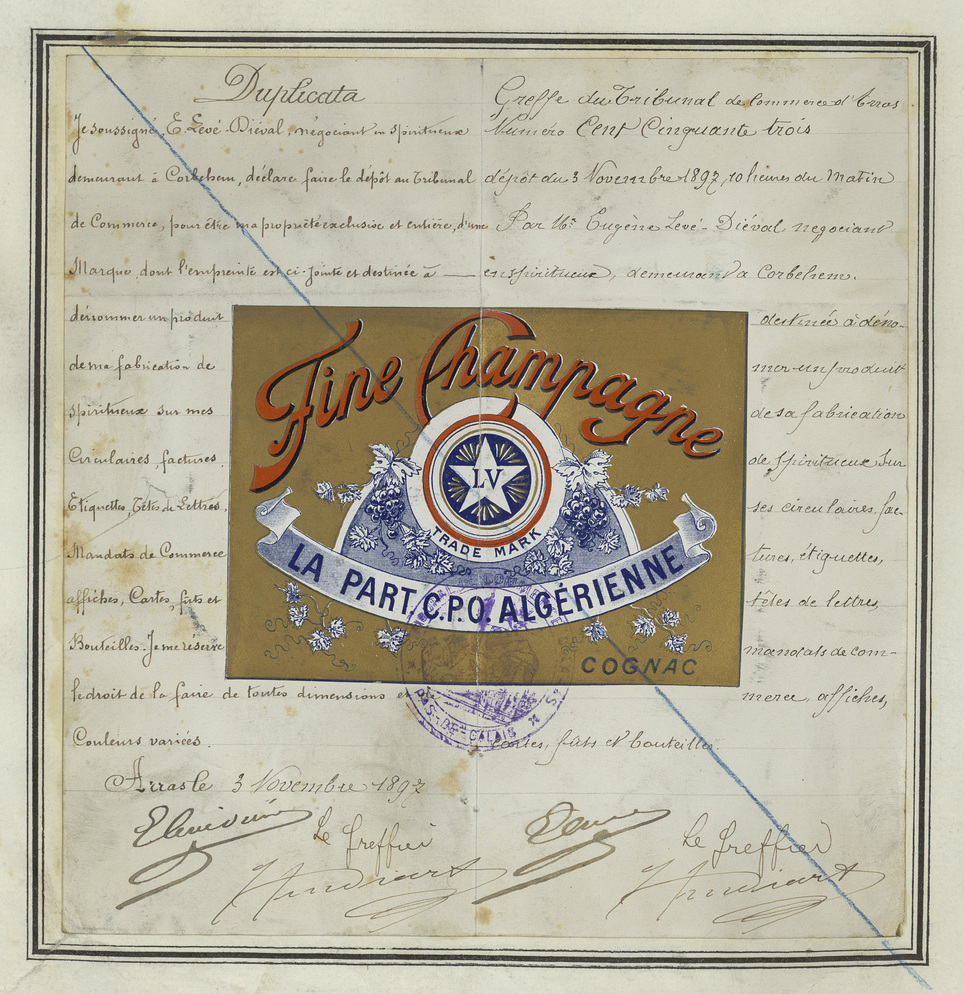 Duplicata
Je soussigné, E. Levé-Diéval, négociant en spiritueux
demeurant à Corbehem, déclare faire le dépôt au Tribunal
de Commerce, pour être ma propriété exclusive et entière, d'une
Marque, dont l'empreinte est ci-jointe et destinée à —
dénommer un produit
de ma fabrication de
spiritueux sur mes
Circulaires, factures,
Etiquettes, Têtes de Lettres,
Mandats de Commerce
affiches, Cartes, fûts et
Bouteilles. Je me réserve
le droit de la faire de toutes dimensions et
Couleurs variées.
Arras le 3 Novembre 1897
Le Greffier
Greffe du Tribunal de Commerce d'Arras
Numéro Cent Cinquante trois
dépôt du 3 Novembre 1897, 10 heures du Matin
Par Mr Eugène Levé-Diéval negociant
en spiritueux, demeurant à Corbehem.
destinée à déno-
mer un produit
de sa fabrication
de spiritueux sur
ses circulaires, fac-
tures, étiquettes,
têtes de lettres,
mandats de com-
merce, affiches,
cartes, fûts et bouteilles.
Le Greffier
Fine Champagne
LV
TRADE MARK
LA PART. C.P.O. ALGÉRIENNE
COGNAC
PAS-DE-CALAIS